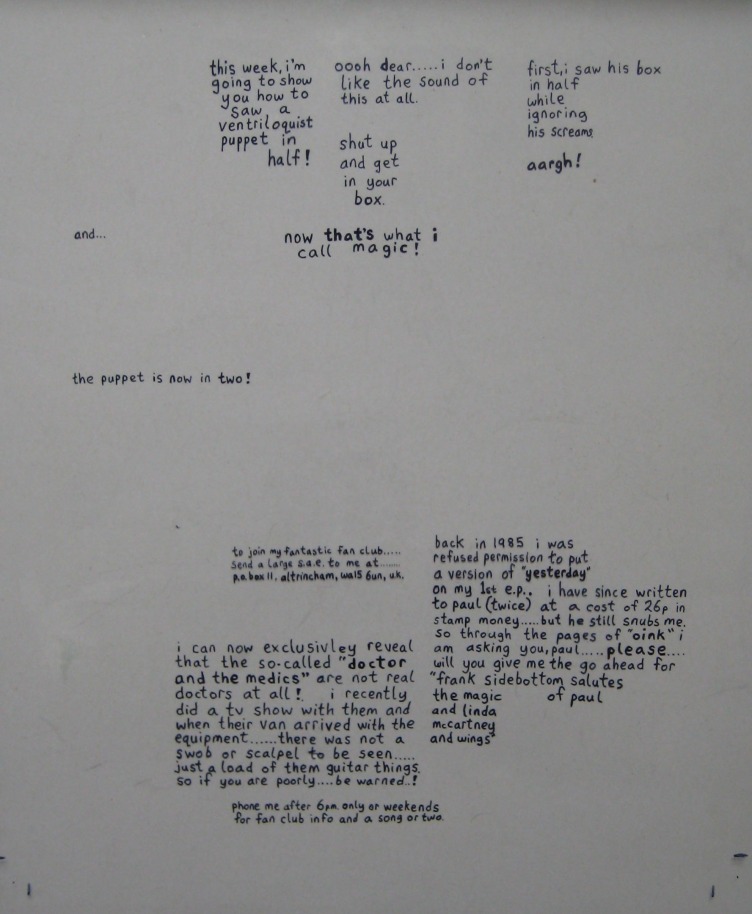 this week, i'm
going to show
you how to
saw a
ventriloquist
puppet in
half!
oooh dear.....i don't
like the sound of
this at all.
shut up
and get
in your
box.
first,i saw his box
in half
while
ignoring
his screams
aargh!
and...
now that's what i
call magic!
the puppet is now in two!
to join my fantastic fan club.....
send a large s.a.e. to me at........
p.o. box 11, altrincham, wa15 6un, uk.
i can now exclusivley reveal
that the so-called "doctor
and the medics" are not real
doctors at all! i recently
did a tv show with them and
when their van arrived with the
equipment......there was not a
swob or scalpel to be seen.....
just a load of them guitar things.
so if you are poorly....be warned..!
phone me after 6pm only or weekends
for fan club info and a song or two.
back in 1985 i was
refused permission to put
a version of "yesterday"
on my 1st e.p.. i have since written
to paul (twice) at a cost of 26p in
stamp money.....but he still snubs me.
so through the pages of "oink" i
am asking you,paul.....please....
will you give me the go ahead for
"frank sidebottom salutes
the magic of paul
and linda
mccartney
and wings"